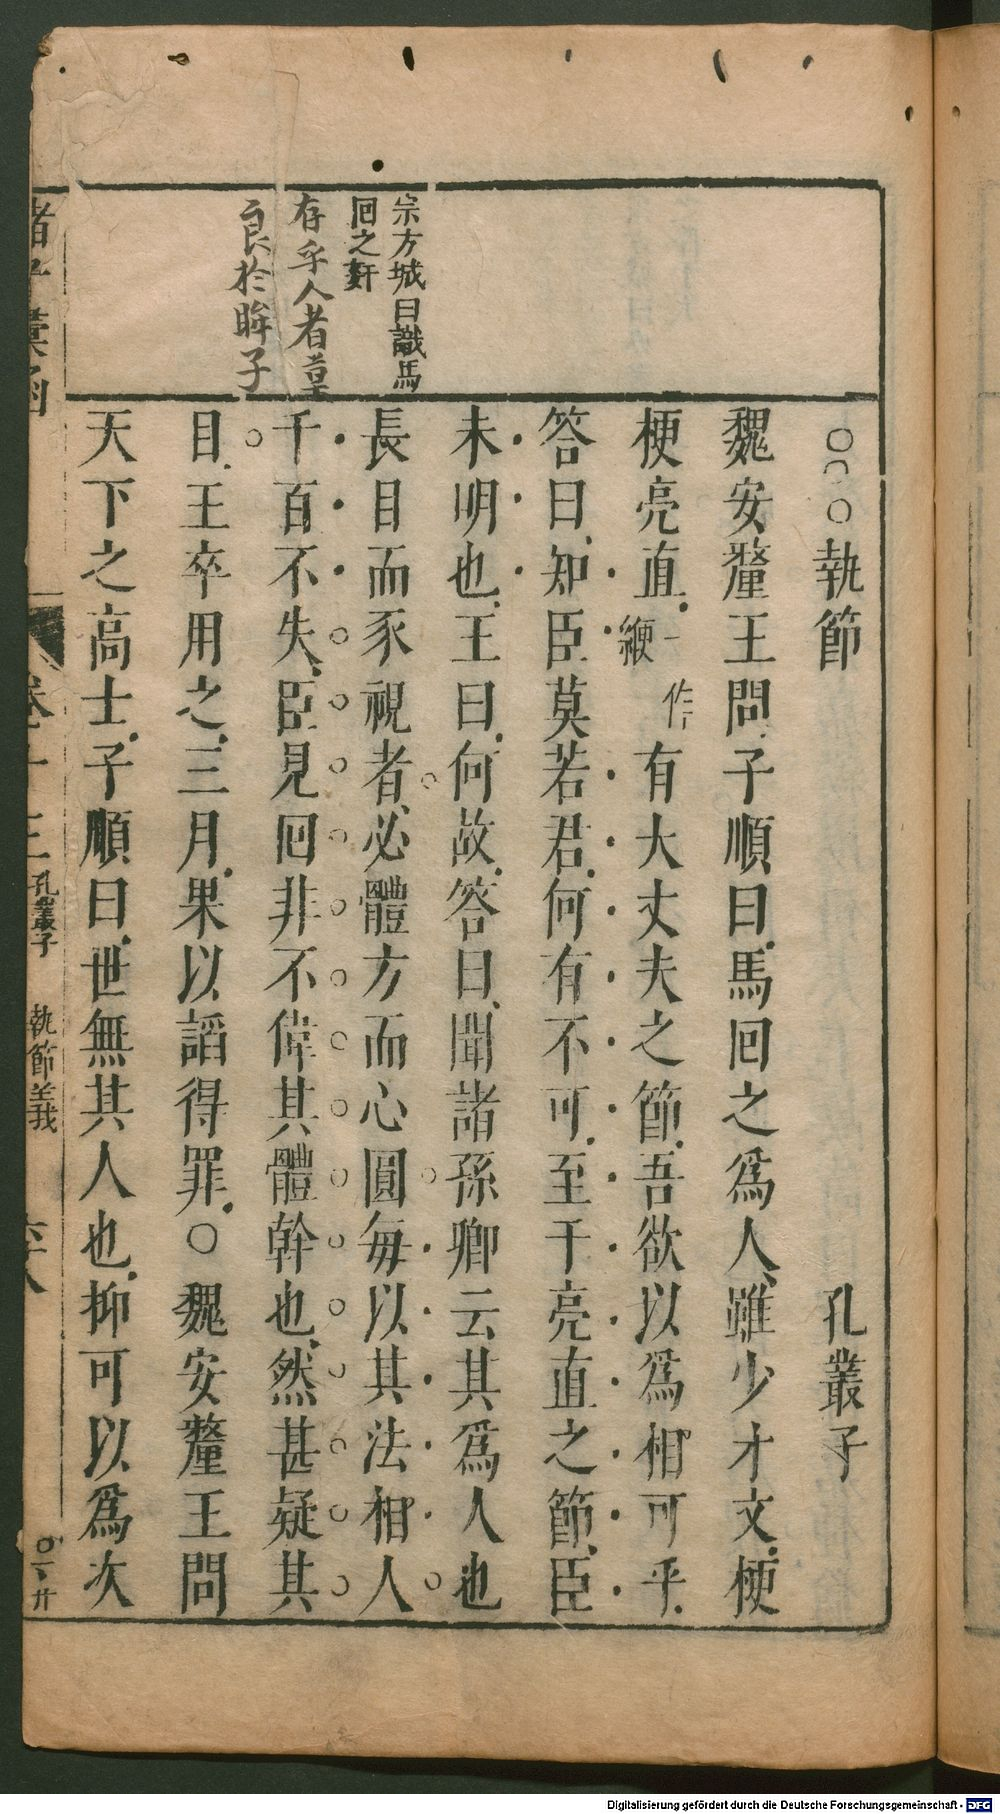 宗方城曰識馬
回之姧
存乎人者莫
良於眸子
○○○執節 孔叢子
魏安釐王問子順曰馬回之爲人雖少才文梗
梗亮直一作緶有大丈夫之節吾欲以爲相可乎
答曰知臣莫若君何有不可至于亮直之節臣
未明也王曰何故答曰聞諸孫卿云其爲人也
長目而豕視者必體方而心圓每以其法相人
千百不失臣見回非不偉其體幹也然甚疑其
目王卒用之三月果以謟得罪○魏安釐王問
天下之高士子順曰世無其人也抑可以爲次
諸子彙函
卷十三 孔叢子 執節義 六十八
Digitalisierung gefördert durch die Deutsche Forschungsgemeinschaft - DFG